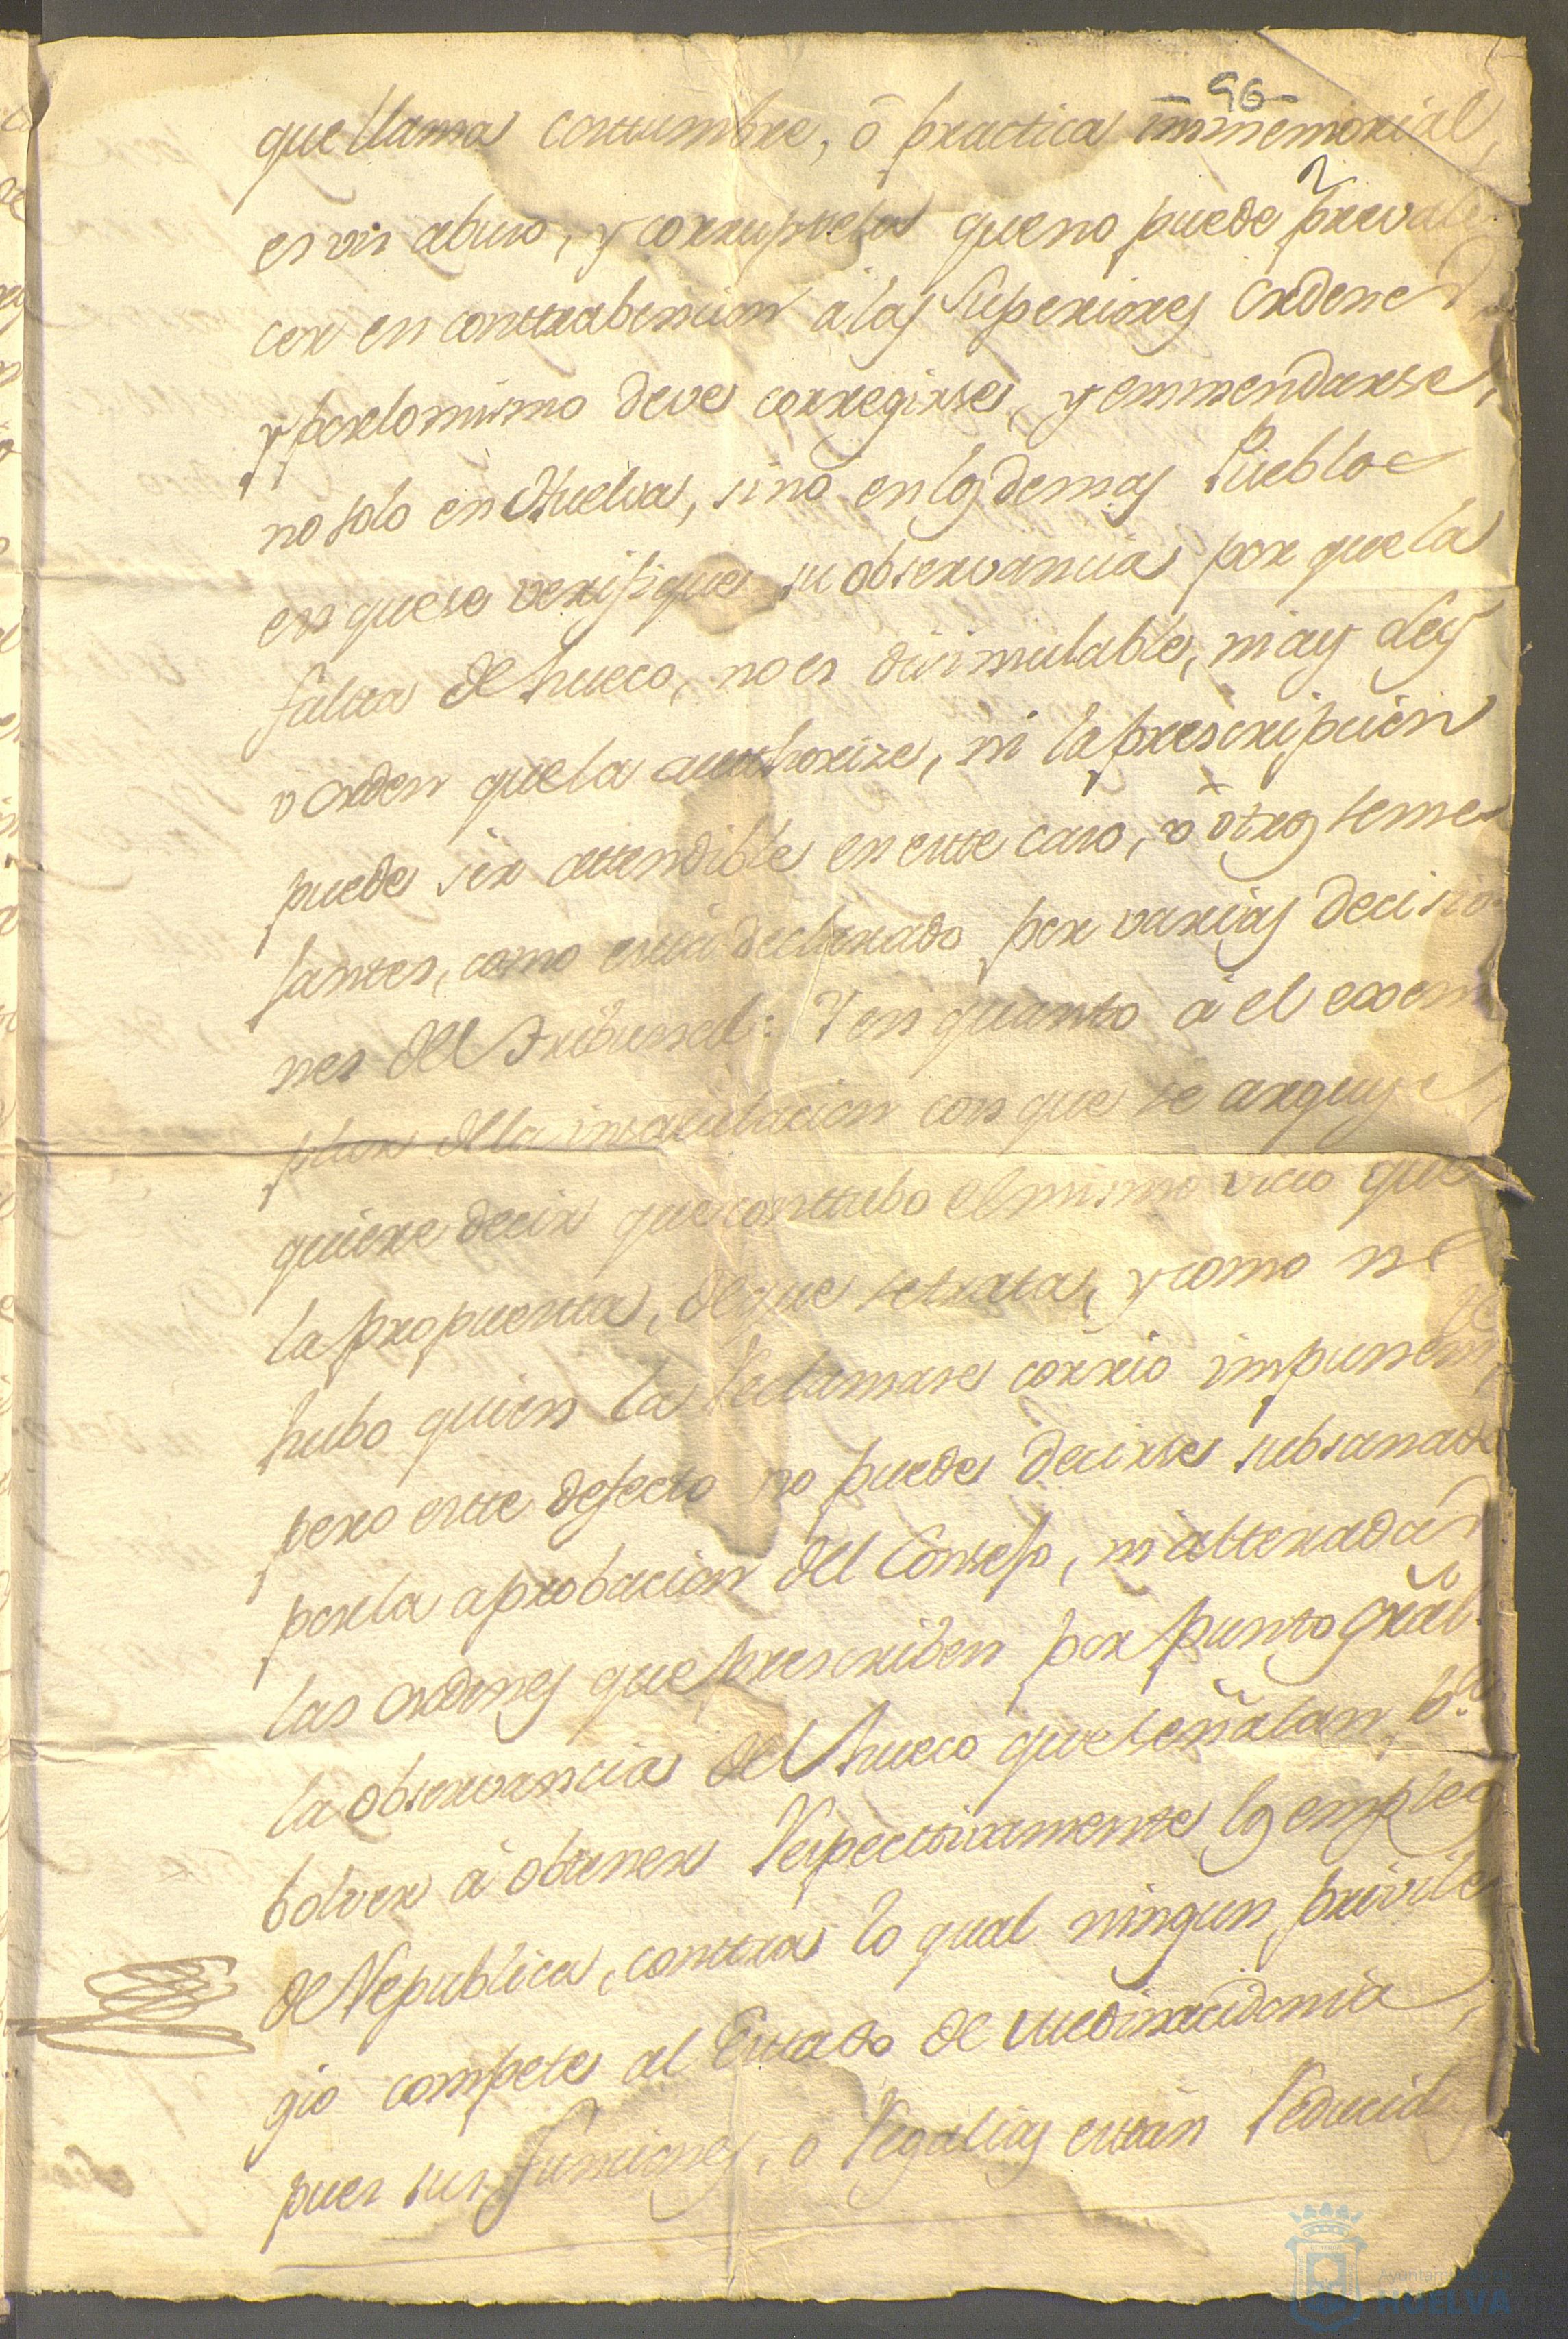 -96-
que llama costtumbre, ó practica immemorial,
2
es vn abuso, y corruptela que no puede prevale
cer en conttrabencion á las Superiores Ordenes
y porlomismo deve corregirse, y emmendarse,
no solo en Huelva, sino en los demas Pueblos
en quese verifique su observancia por que la
falta de hueco, no es disimulable, ni ay Ley
v orden que la autthorize, ni la prescripcion
puede ser attendible en estte caso, v otros seme
jantes, como está declarado por varias decisio
nes del Tribunal: Y en quanto á el exem
plar dela insaculacion con que se arguye,
quiere decir que conttubo el mismo vicio que
la propuestta, de que se trata, y como no
hubo quien la reclamase corrió impunemte
pero estte defecto no puede decirse subsanado
por la aprobacion del Consejo, ni altteradas
las ordenes que prescriben por punto gral.
la observancia del hueco que señalan pa.
bolver á obtener respecttivamente los empleos
de Republica, conttra lo qual ningun privile
gio compete al Esttado de Medinacidonia,
pues sus funciones, o regalias esttán reducidas
Ayuntamiento de
HUELVA